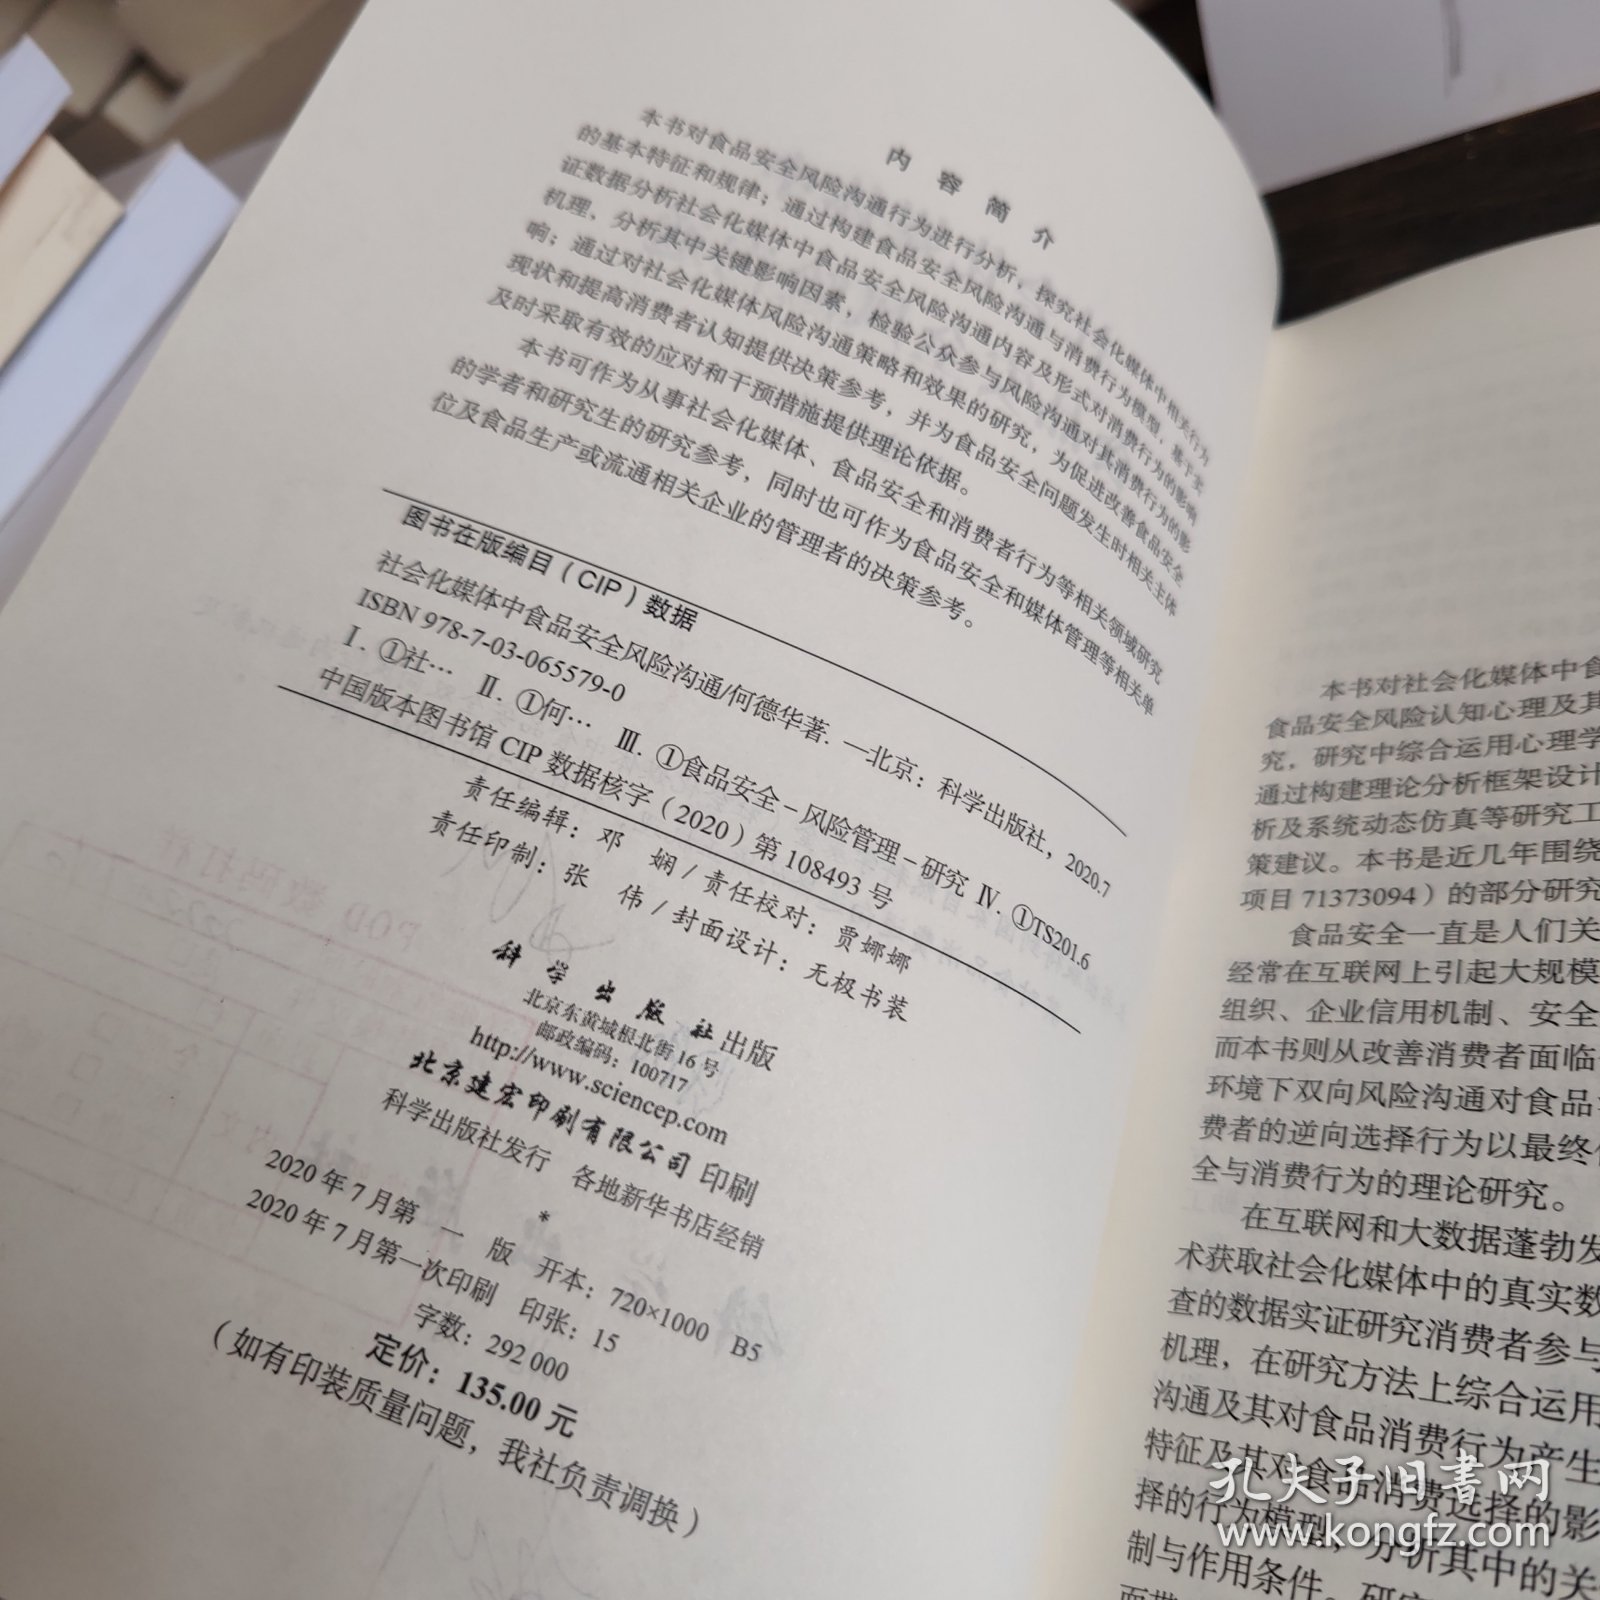 内 容 简 介
本书对食品安全风险沟通行为进行分析，探究社会化媒体中相关行为
的基本特征和规律；通过构建食品安全风险沟通与消费行为模型，基于实
证数据分析社会化媒体中食品安全风险沟通内容及形式对消费行为的影响
机理，分析其中关键影响因素，检验公众参与风险沟通对其消费行为的影
响；通过对社会化媒体风险沟通策略和效果的研究，为促进改善食品安全
现状和提高消费者认知提供决策参考，并为食品安全问题发生时相关主体
及时采取有效的应对和干预措施提供理论依据。
本书可作为从事社会化媒体、食品安全和消费者行为等相关领域研究
的学者和研究生的研究参考，同时也可作为食品安全和媒体管理等相关单
位及食品生产或流通相关企业的管理者的决策参考。
图书在版编目（CIP）数据
社会化媒体中食品安全风险沟通/何德华著. —北京：科学出版社，2020.7
ISBN 978-7-03-065579-0
Ⅰ. ①社… Ⅱ. ①何… Ⅲ. ①食品安全－风险管理－研究 Ⅳ. ①TS201.6
中国版本图书馆 CIP 数据核字（2020）第 108493 号
责任编辑：邓 娴 / 责任校对：贾娜娜
责任印制：张 伟 / 封面设计：无极书装
科学出版社 出版
北京东黄城根北街 16 号
邮政编码：100717
http://www.sciencep.com
北京建宏印刷有限公司 印刷
科学出版社发行 各地新华书店经销
*
2020 年 7 月第 一 版 开本：720×1000 B5
2020 年 7 月第一次印刷 印张：15
字数：292 000
定价：135.00 元
（如有印装质量问题，我社负责调换）
本书对社会化媒体中食
食品安全风险认知心理及其
究，研究中综合运用心理学
通过构建理论分析框架设计
析及系统动态仿真等研究工
策建议。本书是近几年围绕
项目 71373094）的部分研究
食品安全一直是人们关
经常在互联网上引起大规模
组织、企业信用机制、安全
而本书则从改善消费者面临
环境下双向风险沟通对食品
费者的逆向选择行为以最终
全与消费行为的理论研究。
在互联网和大数据蓬勃发
术获取社会化媒体中的真实数
查的数据实证研究消费者参与
机理，在研究方法上综合运用
沟通及其对食品消费行为产生
特征及其对食品消费选择的影
择的行为模型，分析其中的关
制与作用条件。研究
孔夫子旧书网
www.kongfz.com